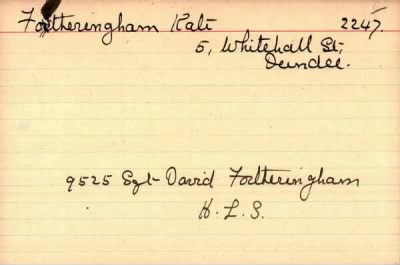 Fotheringham Kate 2247.
5, Whitehall St,
Dundee.
9525 Sgt David Fotheringham
K.L.S.